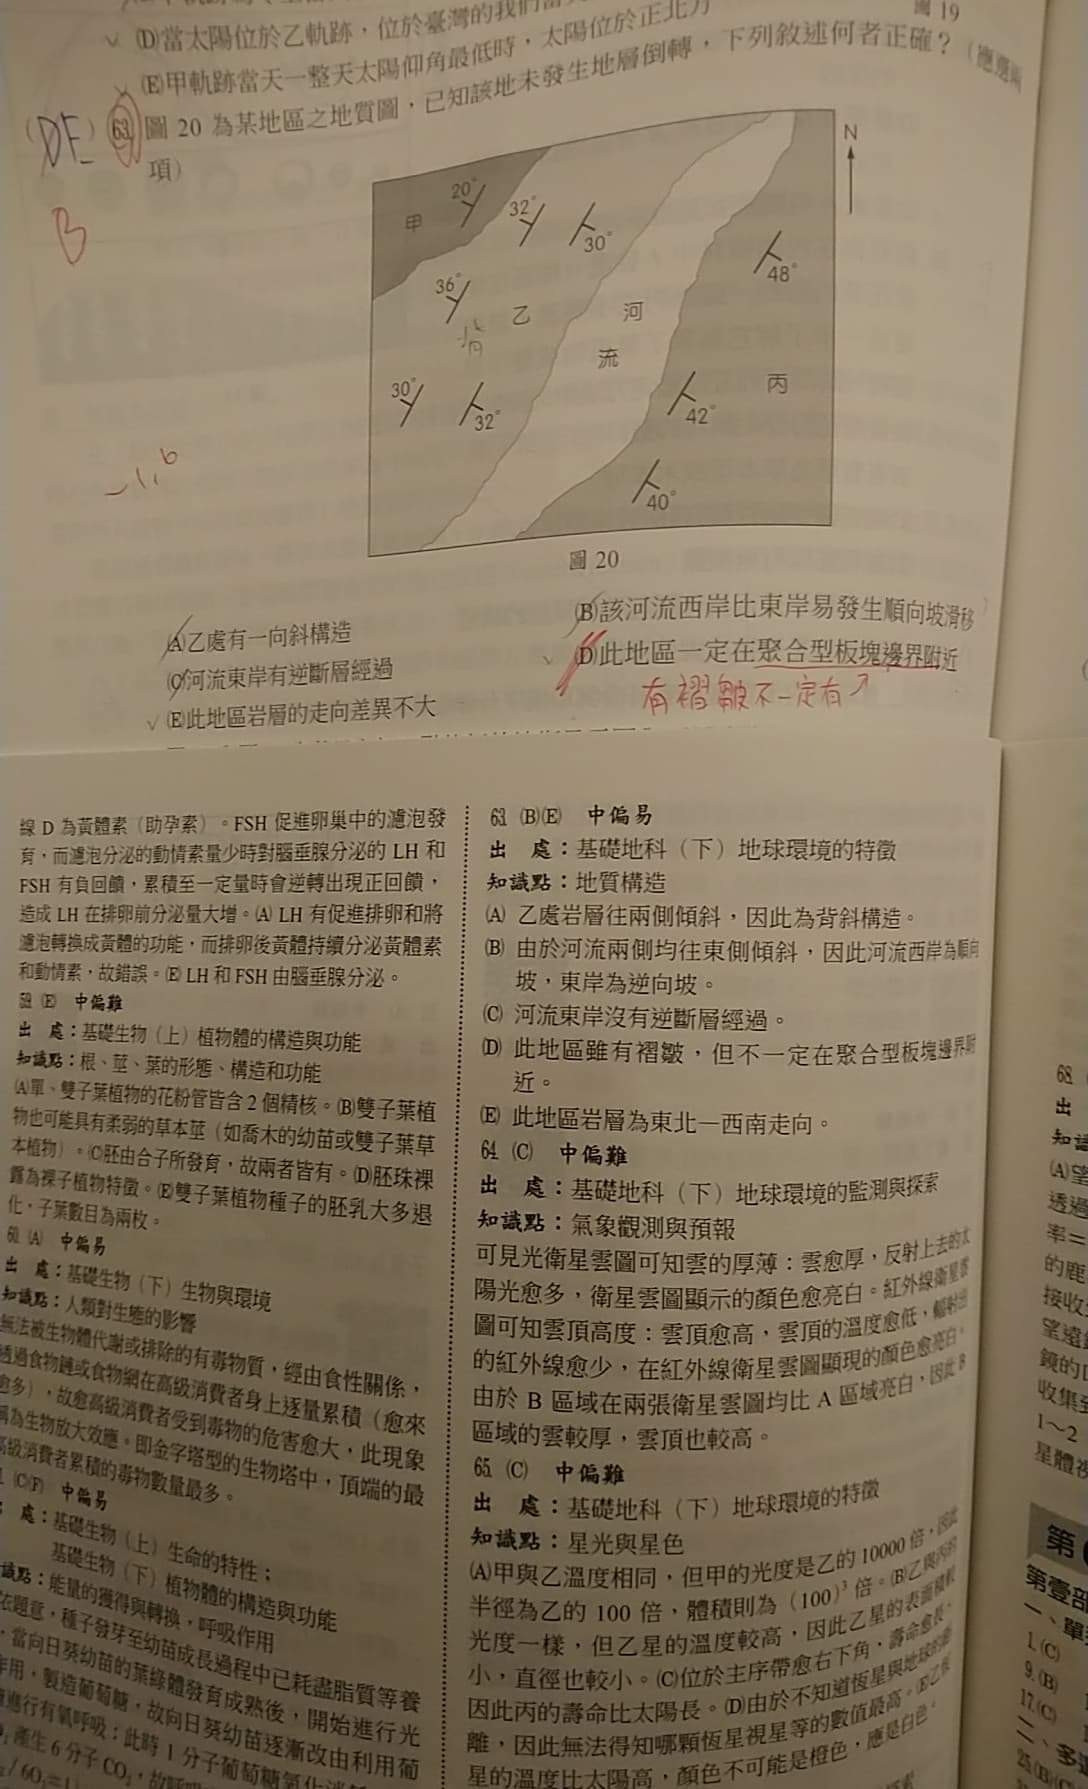 (D)當太陽位於乙軌跡，位於臺灣的我們當
圖 19
(E)甲軌跡當天一整天太陽仰角最低時，太陽位於正北方
(DE) 63. 圖 20 為某地區之地質圖，已知該地未發生地層倒轉，下列敘述何者正確？（應選兩
項）
B
-1.6
N
甲
20°
32°
30°
48°
36°
乙
背
河
流
丙
30°
32°
42°
40°
圖 20
(A)乙處有一向斜構造
(B)該河流西岸比東岸易發生順向坡滑移
(C)河流東岸有逆斷層經過
(D)此地區一定在聚合型板塊邊界附近
有褶皺不一定有↗
(E)此地區岩層的走向差異不大
線 D 為黃體素（助孕素）。FSH 促進卵巢中的濾泡發
育，而濾泡分泌的動情素量少時對腦垂腺分泌的 LH 和
FSH 有負回饋，累積至一定量時會逆轉出現正回饋，
造成 LH 在排卵前分泌量大增。(A) LH 有促進排卵和將
濾泡轉換成黃體的功能，而排卵後黃體持續分泌黃體素
和動情素，故錯誤。(E) LH 和 FSH 由腦垂腺分泌。
59. (E) 中偏難
出 處：基礎生物（上）植物體的構造與功能
知識點：根、莖、葉的形態、構造和功能
(A)單、雙子葉植物的花粉管皆含 2 個精核。(B)雙子葉植
物也可能具有柔弱的草本莖（如喬木的幼苗或雙子葉草
本植物）。(C)胚由合子所發育，故兩者皆有。(D)胚珠裸
露為裸子植物特徵。(E)雙子葉植物種子的胚乳大多退
化，子葉數目為兩枚。
60. (A) 中偏易
出 處：基礎生物（下）生物與環境
知識點：人類對生態的影響
無法被生物體代謝或排除的有毒物質，經由食性關係，
透過食物鏈或食物網在高級消費者身上逐量累積（愈來
愈多），故愈高級消費者受到毒物的危害愈大，此現象
稱為生物放大效應。即金字塔型的生物塔中，頂端的最
高級消費者累積的毒物數量最多。
(C)(F) 中偏易
處：基礎生物（上）生命的特性；
基礎生物（下）植物體的構造與功能
識點：能量的獲得與轉換，呼吸作用
依題意，種子發芽至幼苗成長過程中已耗盡脂質等養
，當向日葵幼苗的葉綠體發育成熟後，開始進行光
作用，製造葡萄糖，故向日葵幼苗逐漸改由利用葡
進行有氧呼吸；此時 1 分子葡萄糖氧化
產生 6 分子 CO₂，故呼吸
63. (B)(E) 中偏易
出 處：基礎地科（下）地球環境的特徵
知識點：地質構造
(A) 乙處岩層往兩側傾斜，因此為背斜構造。
(B) 由於河流兩側均往東側傾斜，因此河流西岸為順向
坡，東岸為逆向坡。
(C) 河流東岸沒有逆斷層經過。
(D) 此地區雖有褶皺，但不一定在聚合型板塊邊界附
近。
(E) 此地區岩層為東北—西南走向。
64. (C) 中偏難
出 處：基礎地科（下）地球環境的監測與探索
知識點：氣象觀測與預報
可見光衛星雲圖可知雲的厚薄：雲愈厚，反射上去的太
陽光愈多，衛星雲圖顯示的顏色愈亮白。紅外線衛星雲
圖可知雲頂高度：雲頂愈高，雲頂的溫度愈低，輻射出
的紅外線愈少，在紅外線衛星雲圖顯現的顏色愈亮白。
由於 B 區域在兩張衛星雲圖均比 A 區域亮白，因此 B
區域的雲較厚，雲頂也較高。
65. (C) 中偏難
出 處：基礎地科（下）地球環境的特徵
知識點：星光與星色
(A)甲與乙溫度相同，但甲的光度是乙的 10000 倍，因此
半徑為乙的 100 倍，體積則為（100）³ 倍。(B)乙與丙的
光度一樣，但乙星的溫度較高，因此乙星的表面積較
小，直徑也較小。(C)位於主序帶愈右下角，壽命愈長，
因此丙的壽命比太陽長。(D)由於不知道恆星與地球的距
離，因此無法得知哪顆恆星視星等的數值最高。(E)乙恆
星的溫度比太陽高，顏色不可能是橙色，應是白色。
68.
出
知識
(A)望
透過
率＝
的鹿
接收
望遠
鏡的
收集
1～2
星體視
第
第壹部
一、單
1.(C)
9.(B)
17.(C)
二、多
25.(B)(C)